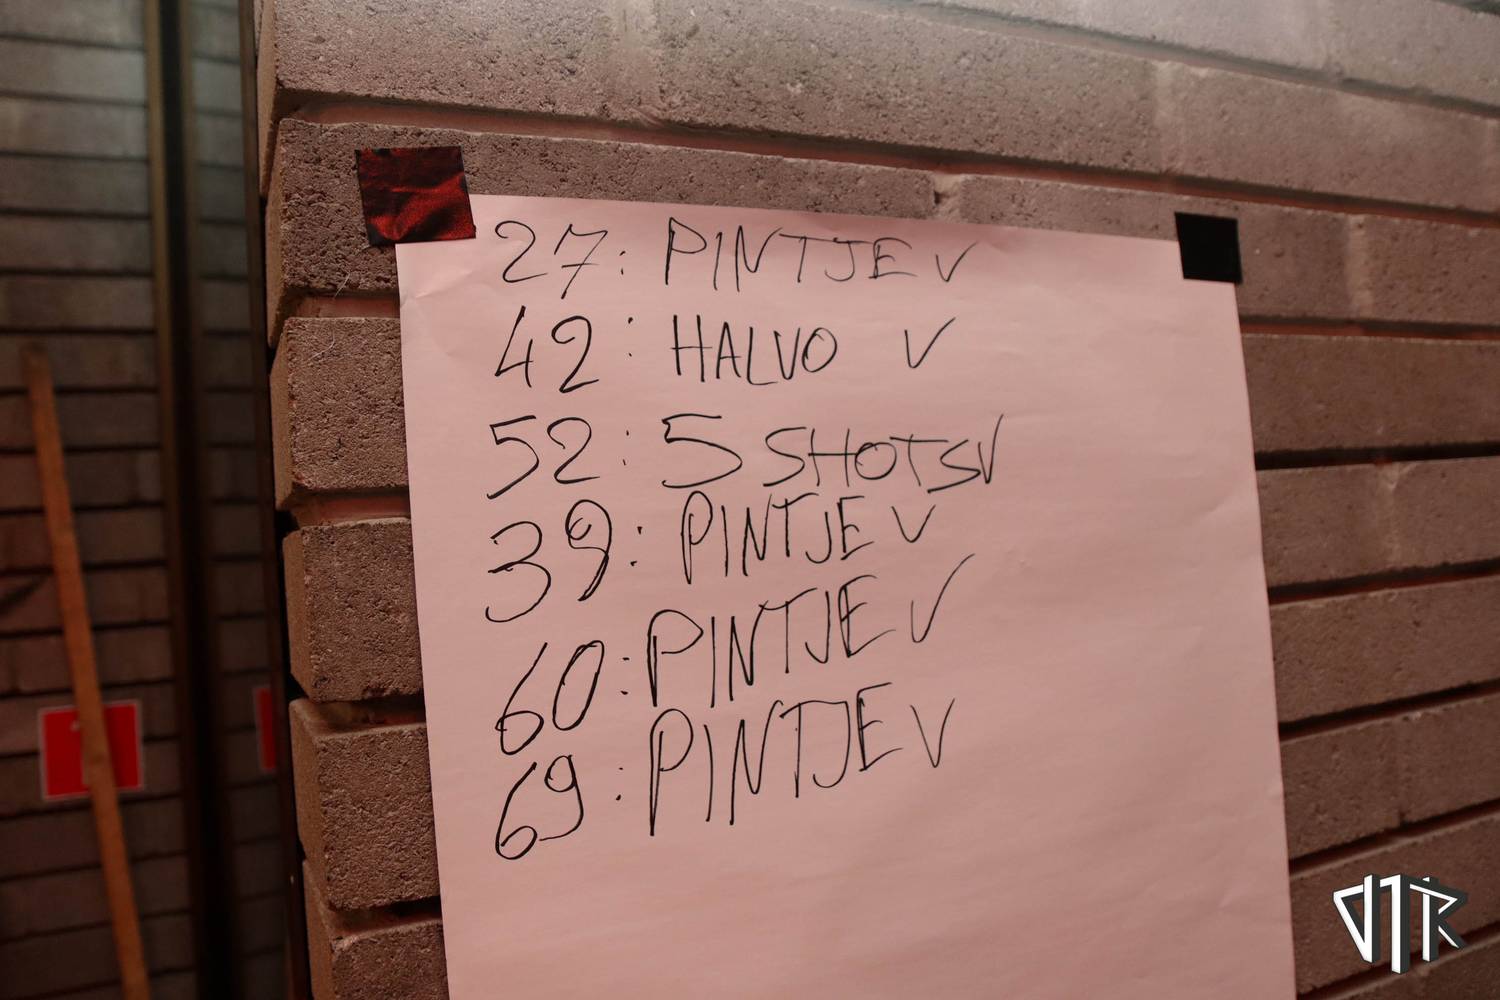 27: PINTJE V
42: HALVO V
52: 5 SHOTS V
39: PINTJE V
60: PINTJE V
69: PINTJE V
VTR